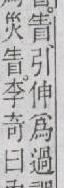 眚。引伸爲過
災眚。李奇曰